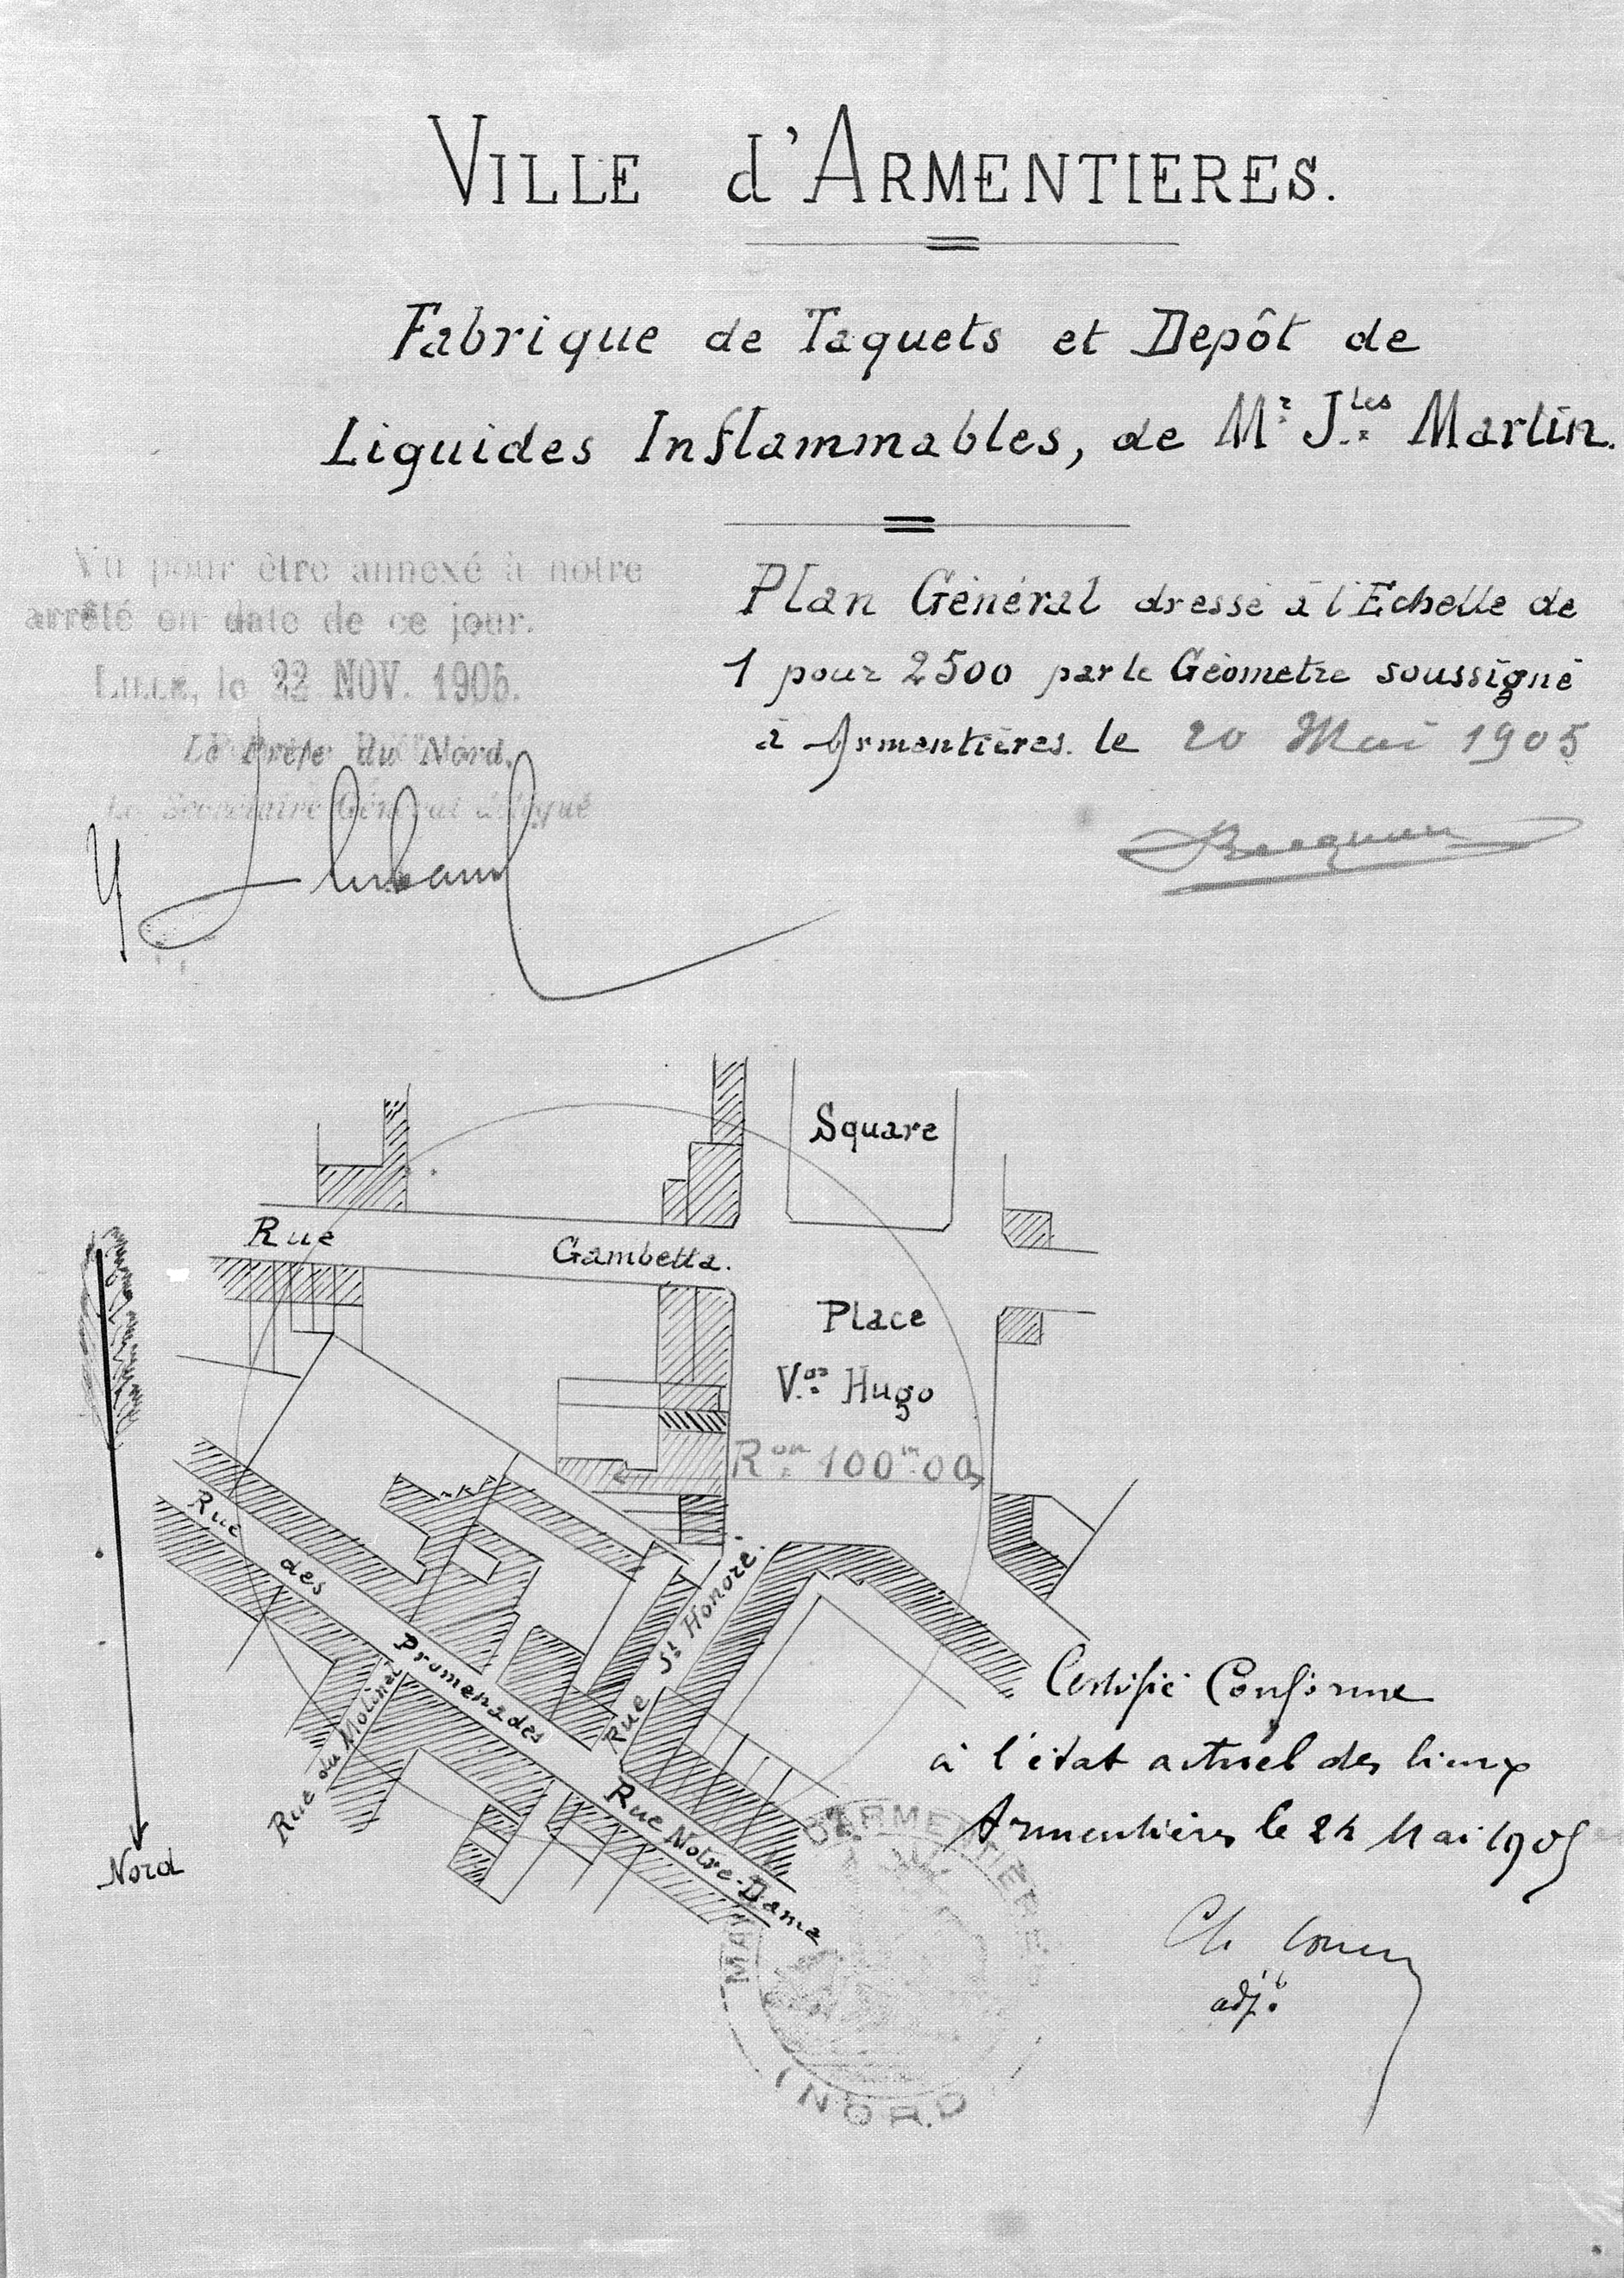 VILLE d'ARMENTIERES.
Fabrique de Taquets et Depôt de
Liquides Inflammables, de Mr Jles Martin.
Vu pour être annexé à notre
arrêté en date de ce jour.
LILLE, le 22 NOV. 1905.
Le Préfet du Nord,
Le Secrétaire Général délégué
Plan Général dressé à l'Echelle de
1 pour 2500 par le Géometre soussigné
à Armentières. le 20 Mai 1905
Square
Rue Gambetta.
Place
Vor Hugo
Ron 100m00
Rue des Promenades
Rue St Honoré.
Rue du Molinel
Rue Notre-Dame
Nord
Certifié Conforme
à l'état actuel des lieux
Armentières le 24 Mai 1905
Ch
adjt
D'ARMENTIÈRES
(NORD)